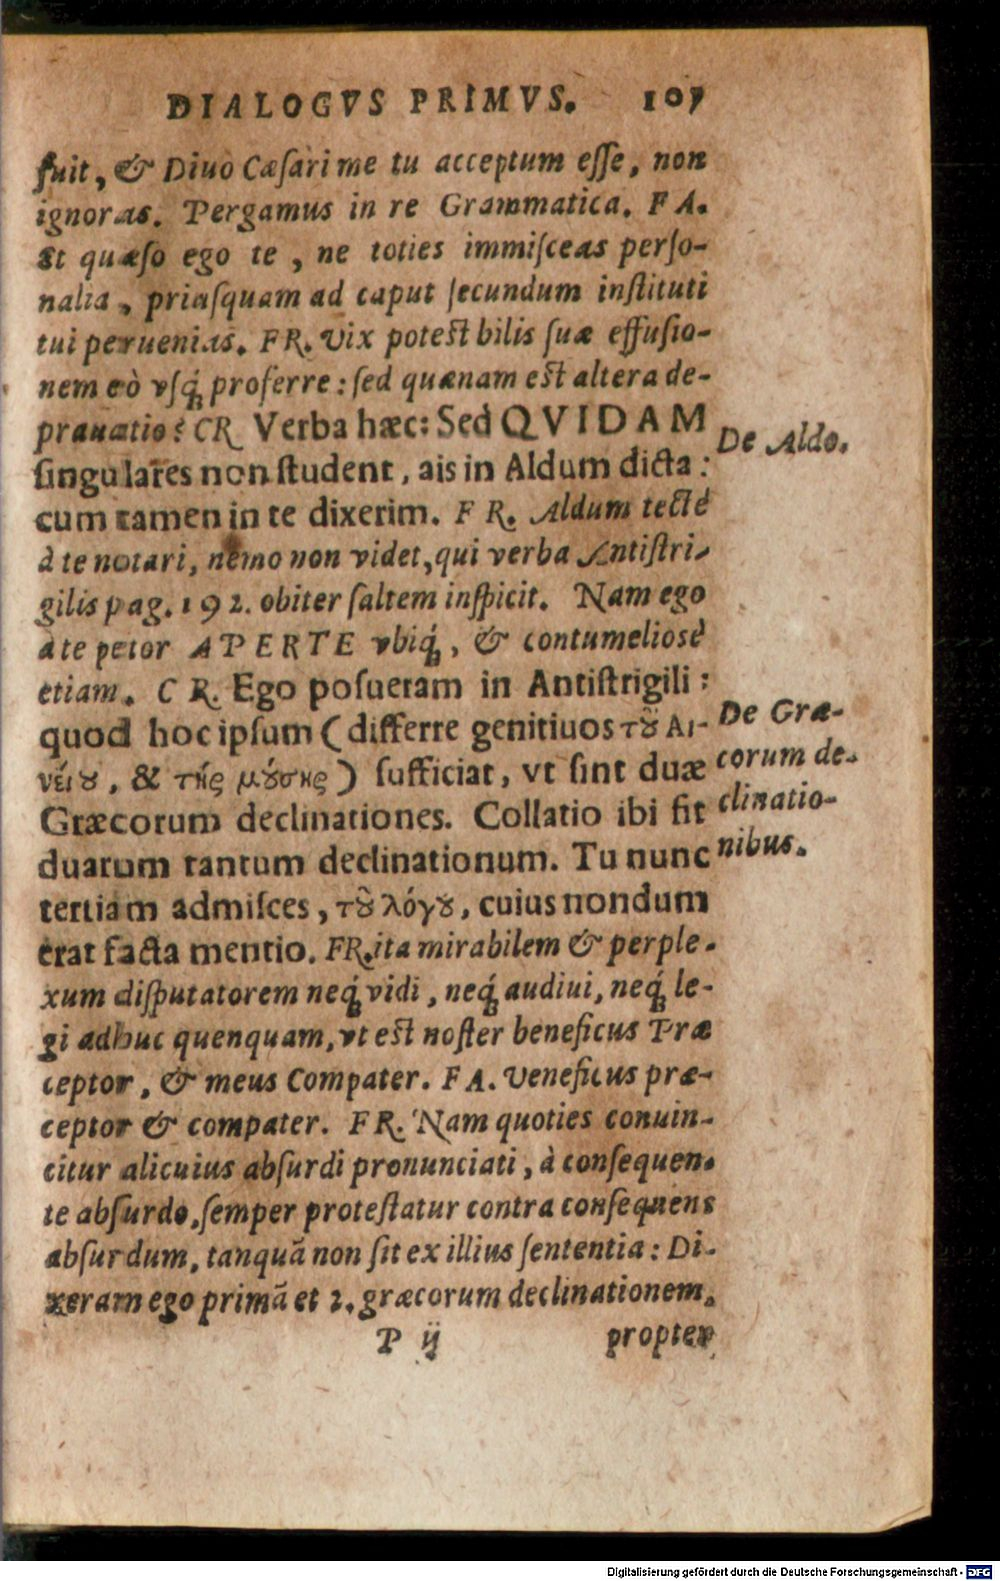 DIALOGVS PRIMVS. 107
fuit, & Diuo Cæsari me tu acceptum esse, non
ignoras. Pergamus in re Grammatica. FA.
Et quæso ego te, ne toties immisceas perso-
nalia, priusquam ad caput secundum instituti
tui peruenias. FR. Vix potest bilis suæ effusio-
nem eò vsq́; proferre: sed quænam est altera de-
prauatio? CR. Verba hæc: Sed QVIDAM
singulares non student, ais in Aldum dicta:
cum tamen in te dixerim. FR. Aldum tectè
à te notari, nemo non videt, qui verba Antistri-
gilis pag. 192. obiter saltem inspicit. Nam ego
à te petor APERTE vbiq́;, & contumeliosè
etiam. CR. Ego posueram in Antistrigili:
quod hoc ipsum (differre genitiuos τȣ͂ Αἰ-
νείȣ, & τῆς μȣ́σης) sufficiat, vt sint duæ
Græcorum declinationes. Collatio ibi fit
duarum tantum declinationum. Tu nunc
tertiam admisces, τȣ͂ λόγȣ, cuius nondum
erat facta mentio. FR. ita mirabilem & perple-
xum disputatorem neq́; vidi, neq́; audiui, neq́; le-
gi adhuc quenquam, vt est noster beneficus Præ
ceptor, & meus Compater. FA. Veneficus præ-
ceptor & compater. FR. Nam quoties conuin-
citur alicuius absurdi pronunciati, à consequen-
te absurdo, semper protestatur contra consequens
absurdum, tanquã non sit ex illius sententia: Di-
xeram ego primã et 2. græcorum declinationem,
P ij propter
De Aldo.
De Græ-
corum de-
clinatio-
nibus.
Digitalisierung gefördert durch die Deutsche Forschungsgemeinschaft - DFG